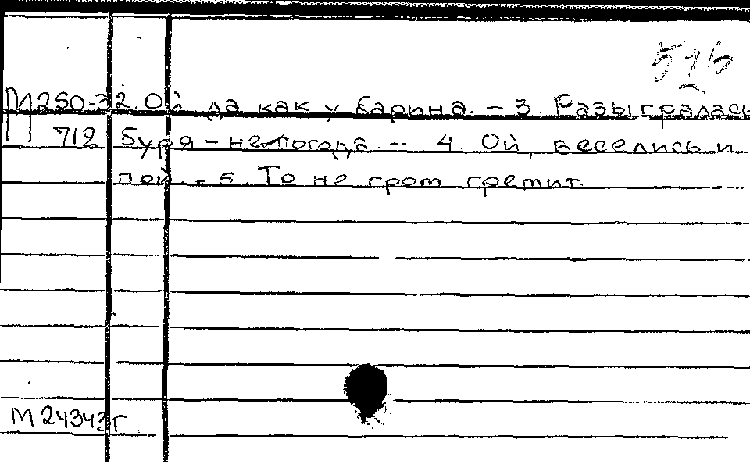 515
М250-32. Ой да как у барина. – 3 Разыгралась
712 буря – непогода – 4 Ой, веселись и
пой. – 5. То не гром гремит.
М 24343г